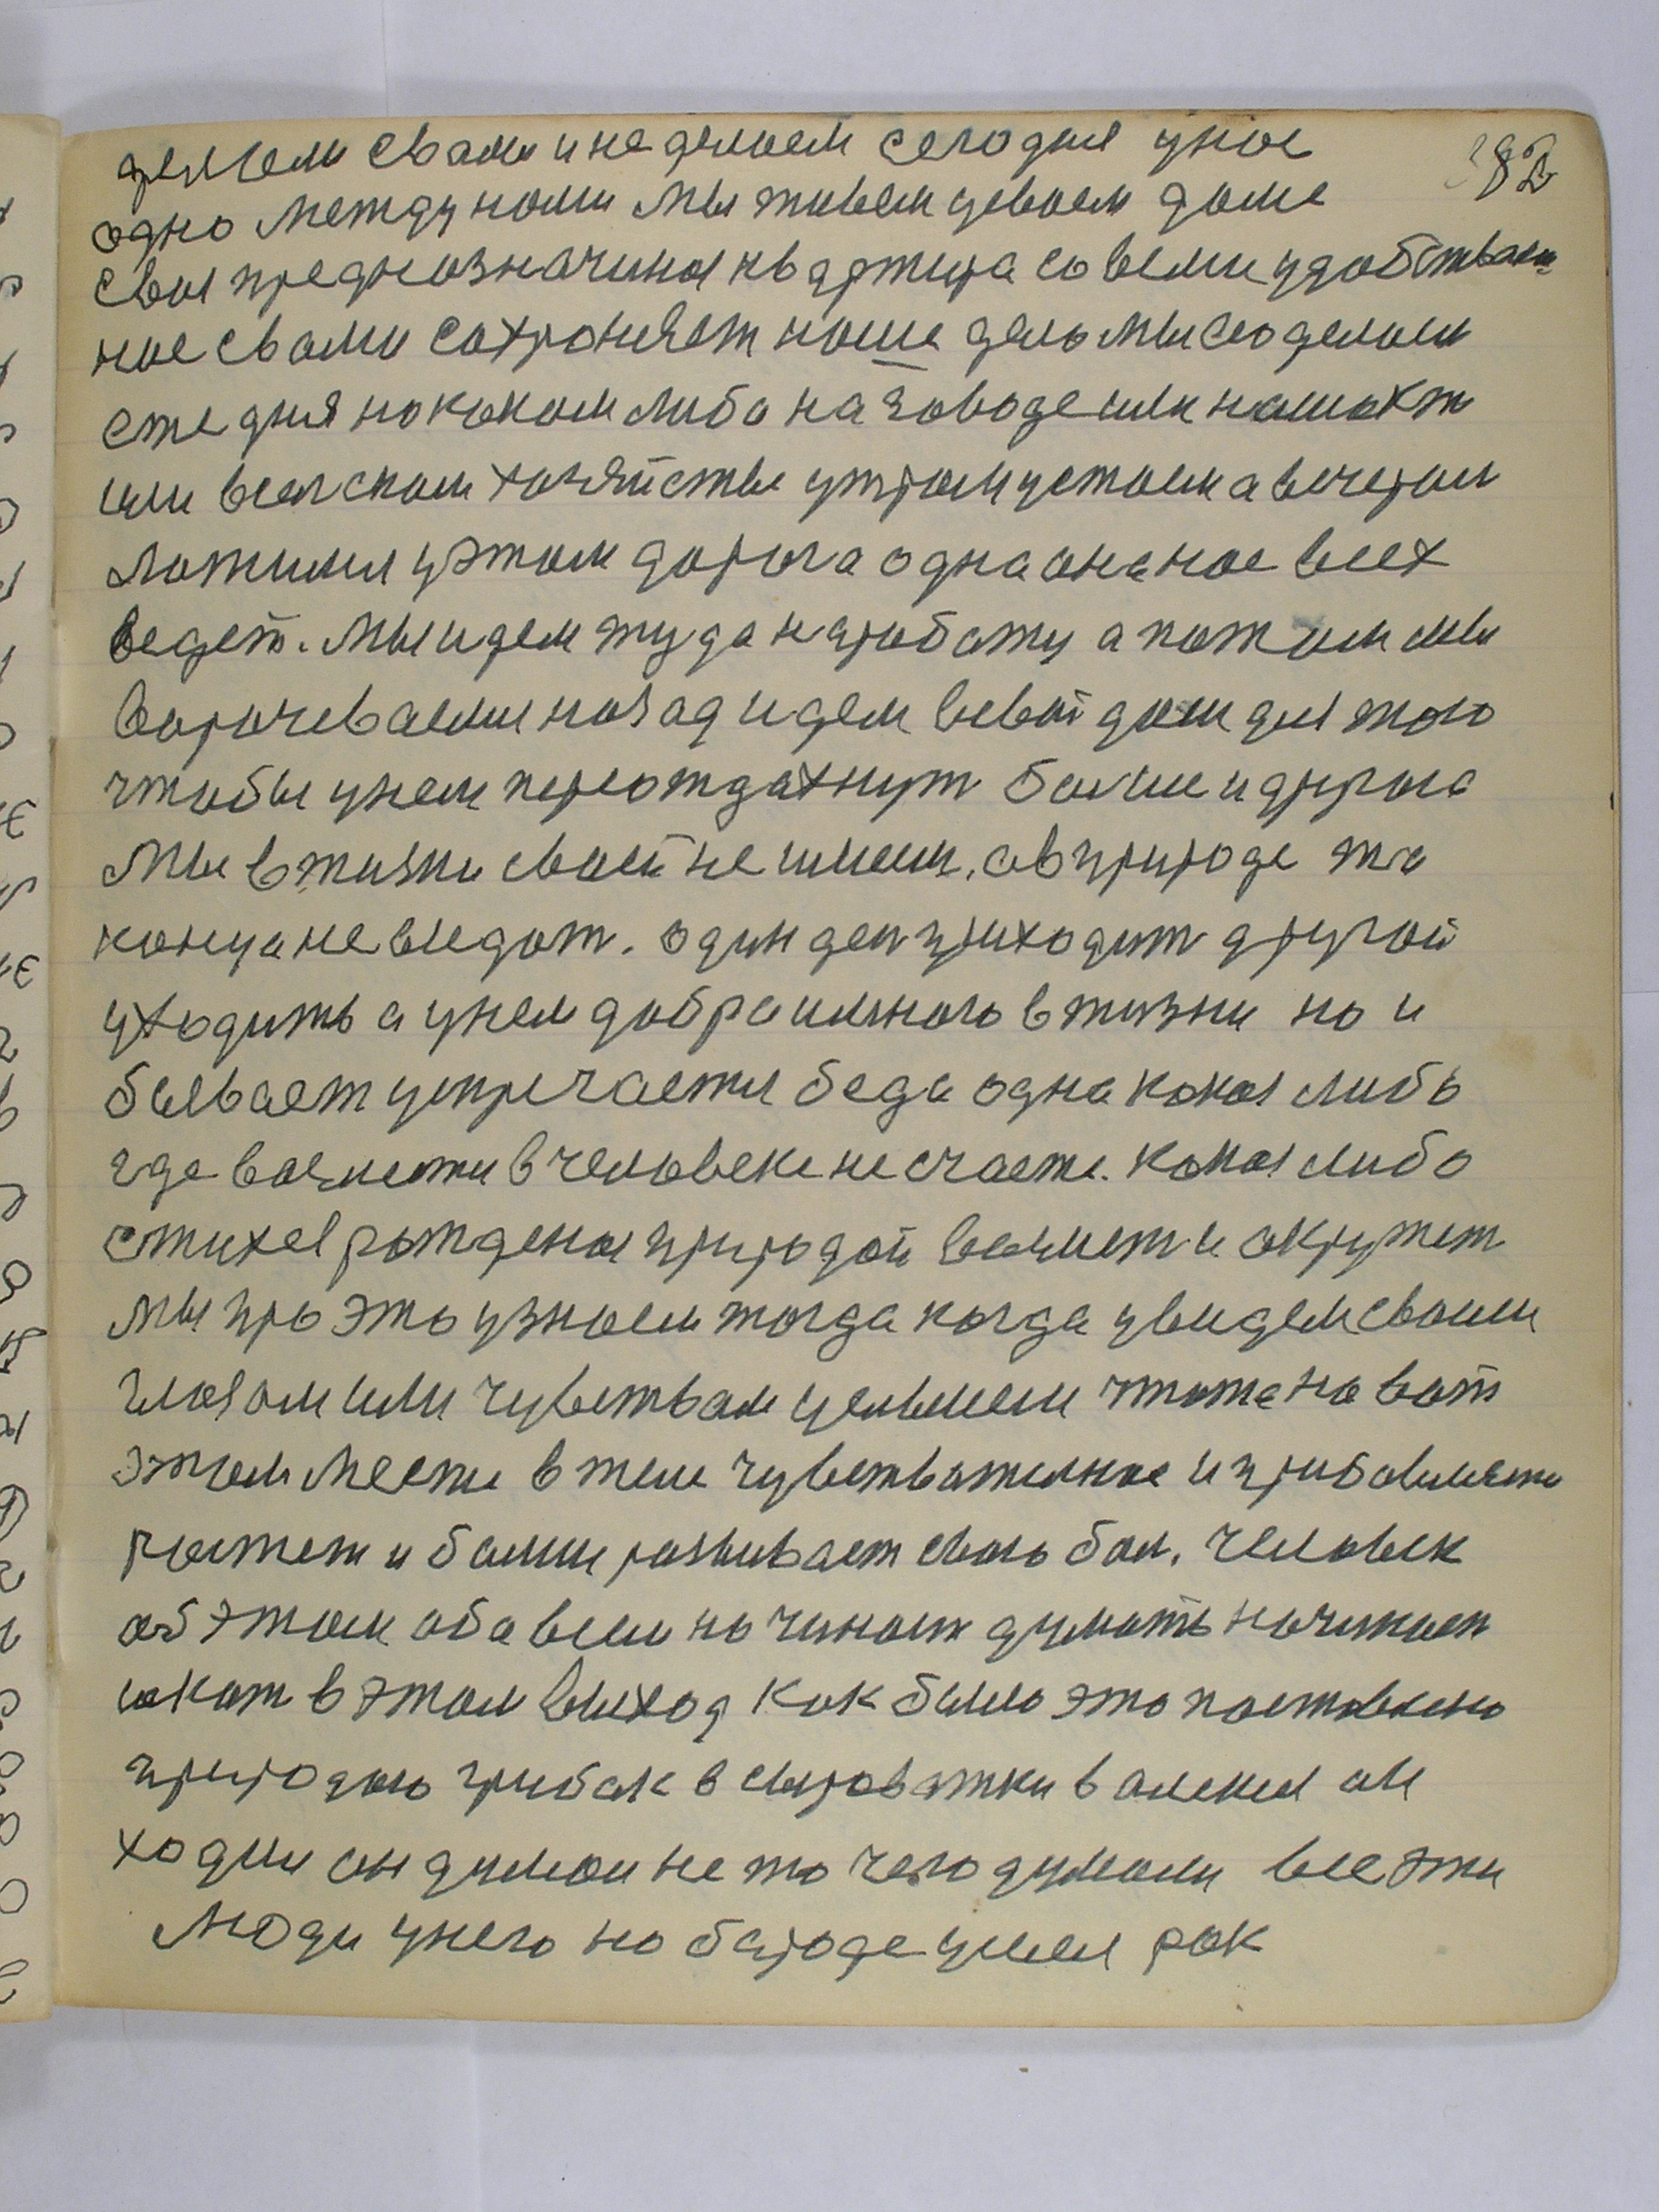 делаем свами и не делаем сегодня унас
82
одно между номи мы живем усвоем доме
своя предназначиная квартира совсеми удобствами
нас свами сохроняет наше дело мы его делаем
еже дня на каком либо на заводе или на шахт
или велском хозяйстве утром устоем а вечером
ложимся уэтом дорога одна она нас всех
ведет. мы идем туда на работу а потом мы
ворочеваемся назад идем всвой дом для того
чтобы унем переотдахнут больше и другога
мы в жизни своей не имеем. а в природе та
конца не видат. один ден приходит другой
уходить а унем добра иминого в жизни но и
бывает устречается беда одна какая либо
где возмется в человеке не счастя. какая либо
стихея рождена природой возмет и окружет
мы про это узнаем тогда когда увидем своим
глазам или чувствам услышем чтоже на вот
этом месте в теле чувствателное и прибовляется
ростет и болше развивает свою бол. человек
об этом обо всем начинает думать начинает
искат в этом выход как было это поставлено
природою грибок в сыроватки в алення он
ходил он думал не то чего думали все эти
люди унего на бароде усем рак